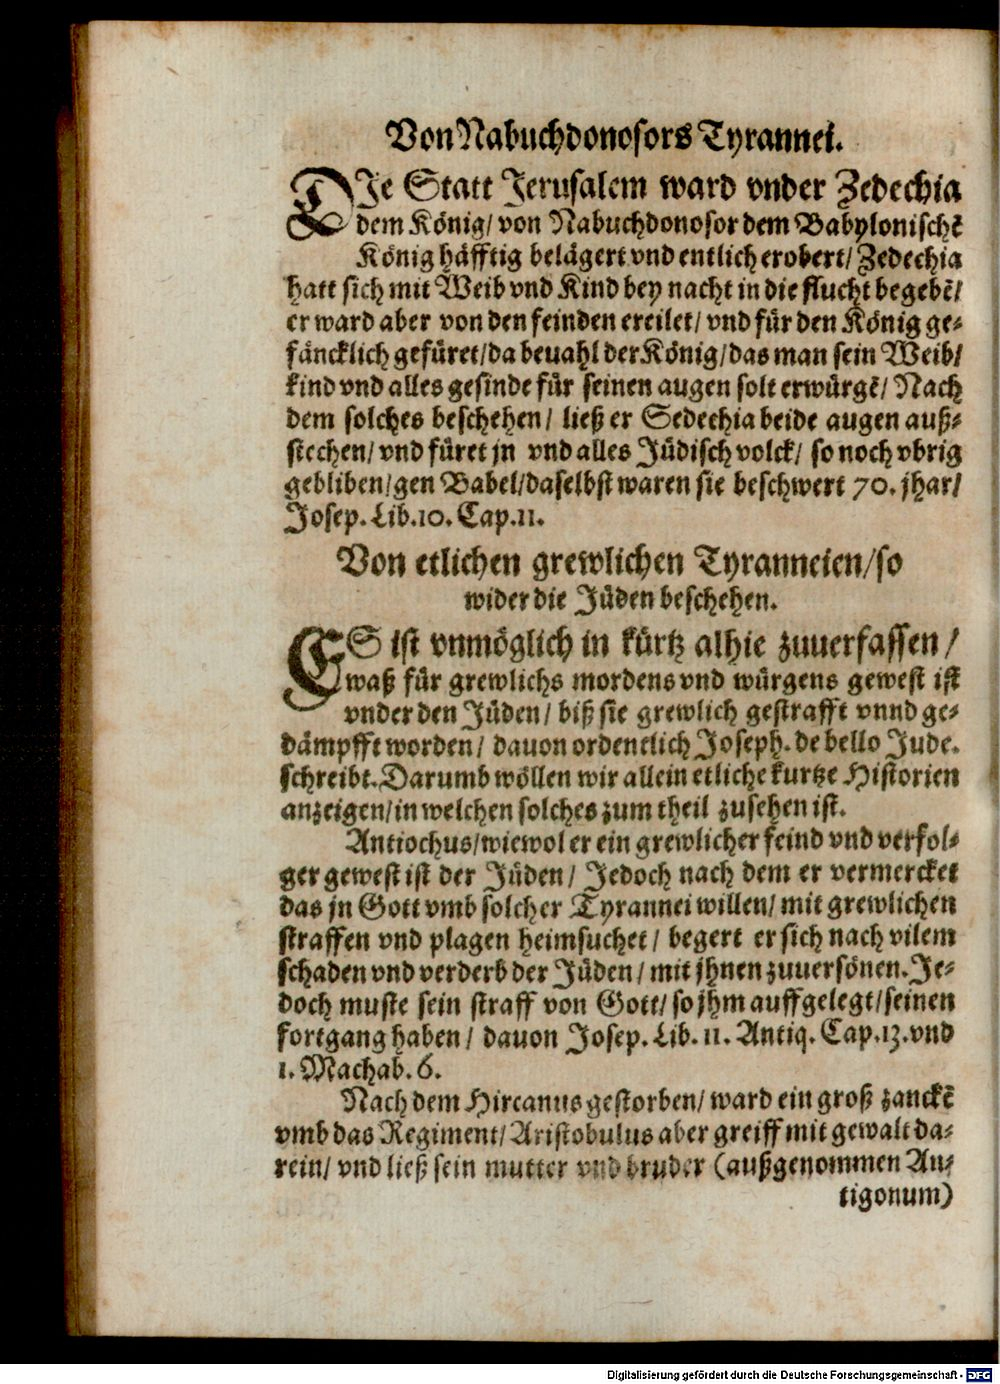 Von Nabuchdonosors Tyrannei.
DIe Statt Jerusalem ward vnder Zedechia
dem König/ von Nabuchdonosor dem Babylonischẽ
König häfftig belägert vnd entlich erobert/ Zedechia
hatt sich mit Weib vnd Kind bey nacht in die flucht begebẽ/
er ward aber von den feinden ereilet/ vnd für den König ge-
fäncklich gefüret/ da beuahl der König/ das man sein Weib/
kind vnd alles gesinde für seinen augen solt erwürgẽ/ Nach
dem solches beschehen/ ließ er Sedechia beide augen auß-
stechen/ vnd füret jn vnd alles Jüdisch volck/ so noch vbrig
gebliben/ gen Babel/ daselbst waren sie beschwert 70. jhar/
Josep. Lib. 10. Cap. 11.
Von etlichen grewlichen Tyranneien/ so
wider die Jüden beschehen.
ES ist vnmöglich in kürtz alhie zuuerfassen/
waß für grewlichs mordens vnd würgens gewest ist
vnder den Jüden/ biß sie grewlich gestrafft vnnd ge-
dämpfft worden/ dauon ordentlich Joseph. de bello Jude.
schreibt. Darumb wöllen wir allein etliche kurtze Historien
anzeigen/ in welchen solches zum theil zusehen ist.
Antiochus/ wiewol er ein grewlicher feind vnd verfol-
ger gewest ist der Jüden/ Jedoch nach dem er vermercket
das jn Gott vmb solcher Tyrannei willen/ mit grewlichen
straffen vnd plagen heimsuchet/ begert er sich nach vilem
schaden vnd verderb der Jüden/ mit jhnen zuuersönen. Je-
doch muste sein straff von Gott/ so jhm auffgelegt/ seinen
fortgang haben/ dauon Josep. Lib. 11. Antiq. Cap. 13. vnd
1. Machab. 6.
Nach dem Hircanus gestorben/ ward ein groß zanckẽ
vmb das Regiment/ Aristobulus aber greiff mit gewalt da-
rein/ vnd ließ sein mutter vnd bruder (außgenommen An-
tigonum)
Digitalisierung gefördert durch die Deutsche Forschungsgemeinschaft - DFG